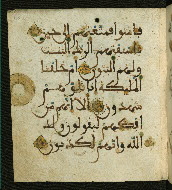 فامنوا فمتعنهم الى حين
فاستفتهم الربك البنات
ولهم البنون ام خلقنا
الملئكة انثا وهم
شهدون الا انهم من
افكهم ليقولون ولد
الله وانهم لكذبون